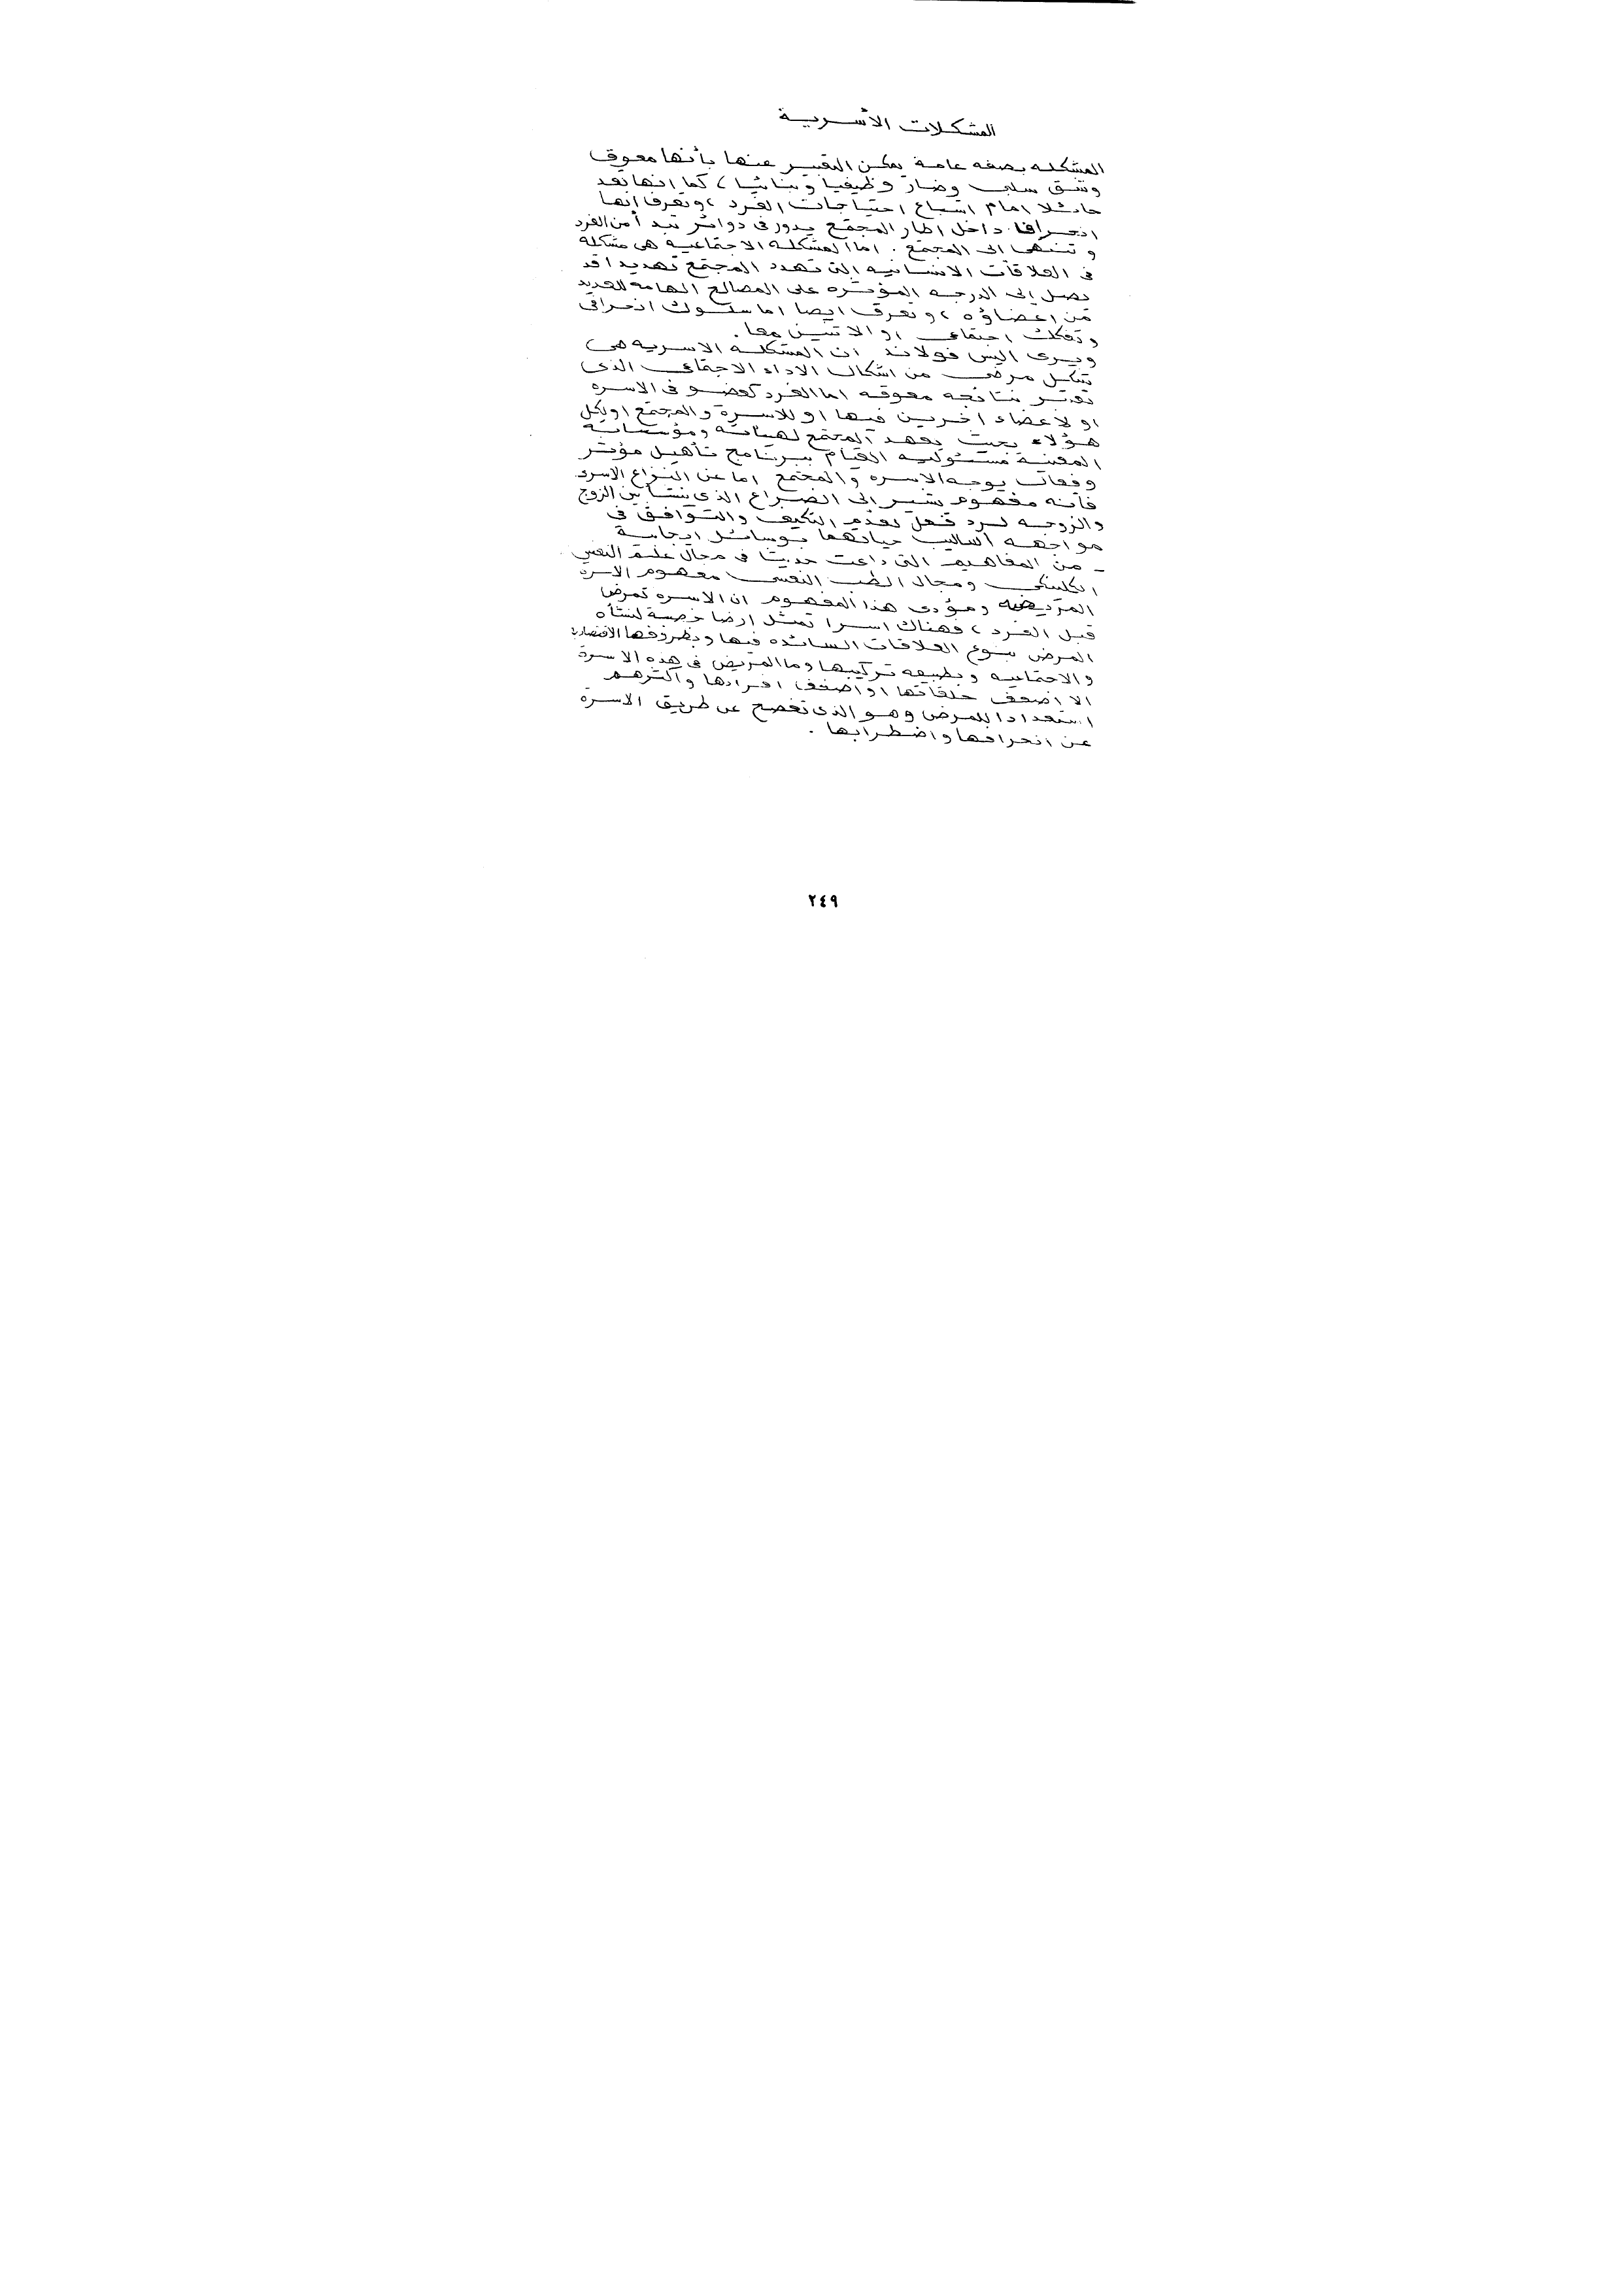 المشكلات الأسرية
المشكله بصفه عامة يمكن التعبير عنها بأنها معوق
وشق سلبى وضار وظيفيا وبنائيا، كما انها تعد
حائلا امام اشباع احتياجات الفرد، وتعرف انها
انحرافا داخل اطار المجتمع يدور فى دوائر تبدأ من الفرد
وتنتهى الى المجتمع. اما المشكله الاجتماعيه هى مشكله
فى العلاقات الانسانيه التى تهدد المجتمع تهديدا قد
يصل إلى الدرجه المؤثره على المصالح الهامه للعديد
من اعضاؤه، وتعرف ايضا اما سلوك انحرافى
وتفكك اجتماعى او الاثنين معا.
ويرى اليس فولاند ان المشكله الاسريه هى
شكل مرضى من اشكال الاداء الاجتماعى الذى
تعتبر نتائجه معوقه اما الفرد كعضو فى الاسره
او لاعضاء اخرين فيها او للاسرة والمجتمع او لكل
هؤلاء بحيث يعهد المجتمع لهيئاته ومؤسساته
المعينة مسئوليه القيام ببرنامج تأهيل مؤثر
وفعال يوجه الاسره والمجتمع اما عن النزاع الاسرى
فأنه مفهوم يشير الى الصراع الذى ينشأ بين الزوج
والزوجه كرد فعل لعدم التكيف والتوافق فى
مواجهه اساليب حياتهما بوسائل ايجابية
- من المفاهيم التى ذاعت حديثا فى مجال علم النفس
اكلينيكى ومجال الطب النفسى مفهوم الاسرة
المريضه ومؤدى هذا المفهوم ان الاسره تمرض
قبل الفرد، فهناك اسرا تمثل ارضا خصبة لنشأه
المرض بنوع العلاقات السائده فيها وبظروفها الاقتصادية
والاجتماعيه وبطبيعه تركيبها وما المريض فى هذه الاسرة
الا اضعف حلقاتها او اضعف افرادها واكثرهم
استعدادا للمرض وهو الذى تفصح عن طريق الاسرة
عن انحرافها واضطرابها.
٢٤٩